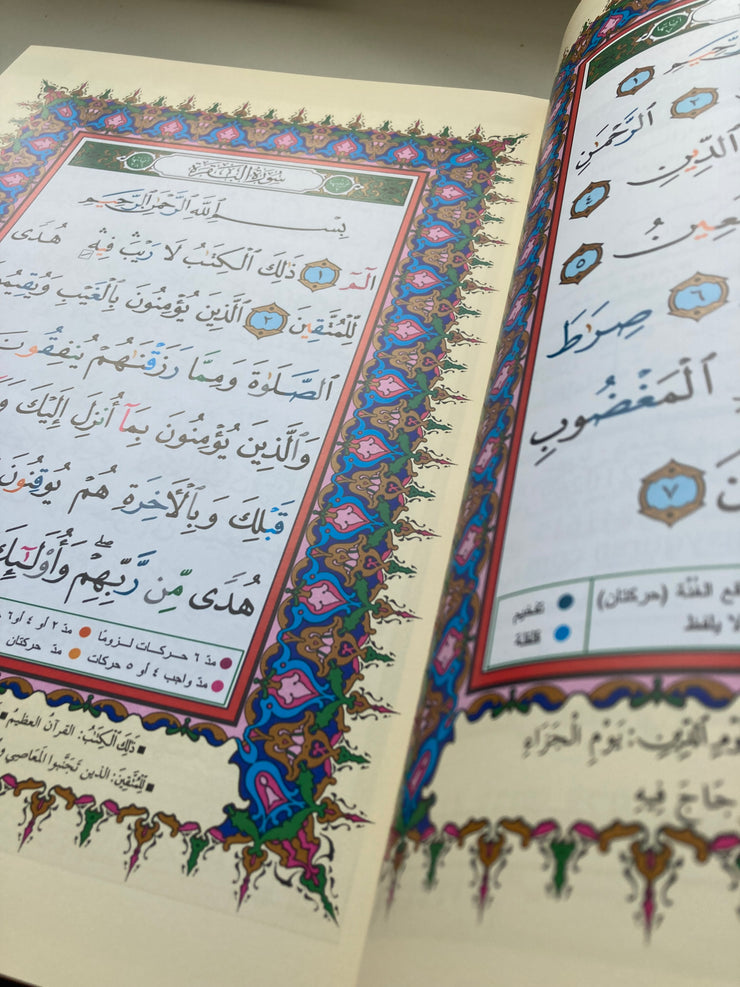 سُورَةُ ٱلْبَقَرَةِ
بِسْمِ ٱللَّهِ ٱلرَّحْمَٰنِ ٱلرَّحِيمِ
الٓمٓ ١ ذَٰلِكَ ٱلْكِتَٰبُ لَا رَيْبَۛ فِيهِۛ هُدًى
لِّلْمُتَّقِينَ ٢ ٱلَّذِينَ يُؤْمِنُونَ بِٱلْغَيْبِ
ٱلصَّلَوٰةَ وَمِمَّا رَزَقْنَٰهُمْ يُنفِقُونَ
وَٱلَّذِينَ يُؤْمِنُونَ بِمَآ أُنزِلَ إِلَيْكَ
قَبْلِكَ وَبِٱلْأَخِرَةِ هُمْ يُوقِنُونَ
هُدًى مِّن رَّبِّهِمْۖ
مدّ ٦ حركات لزومًا مدّ ٢ أو ٤ أو ٦
مدّ واجب ٤ أو ٥ حركات مدّ حركتان
ذَٰلِكَ ٱلْكِتَٰبُ: القرآن العظيم
لِلْمُتَّقِينَ: الذين تَجَنَّبوا المَعَاصِي
١
ٱلرَّحْمَٰنِ ٢
ٱلدِّينِ
٤
٥
صِرَٰطَ ٦
ٱلْمَغْضُوبِ
٧
الغُنَّة (حركتان) تفخيم
يلفظ قلقلة
يَوْمِ الْجَزَاءِ